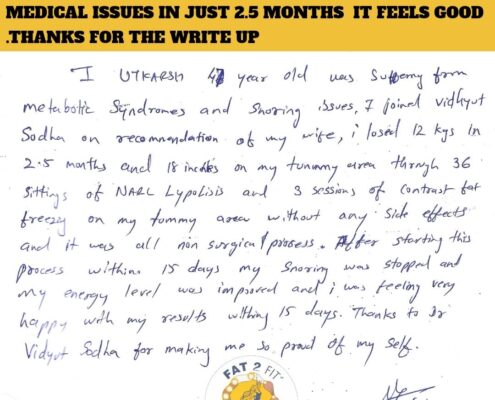 MEDICAL ISSUES IN JUST 2.5 MONTHS IT FEELS GOOD
.THANKS FOR THE WRITE UP
I UTKARSH 47 year old was Suffering from
metabotic Syndromes and Snoring issues, I joined vidhyut
Sodha on recommendation of my wife, i losed 12 kgs in
2.5 months and 18 inches on my tummy area through 36
sittings of NARL Lypolisis and 3 sessions of Contrast fat
freezy on my tommy area without any side effects
and it was all non surgical process. After starting this
process within 15 days my snoring was stopped and
my energy level was improved and i was feeling very
happy with my results withing 15 days. Thanks to Dr
Vidyut Sodha for making me so proud of my self.
FAT 2 FIT